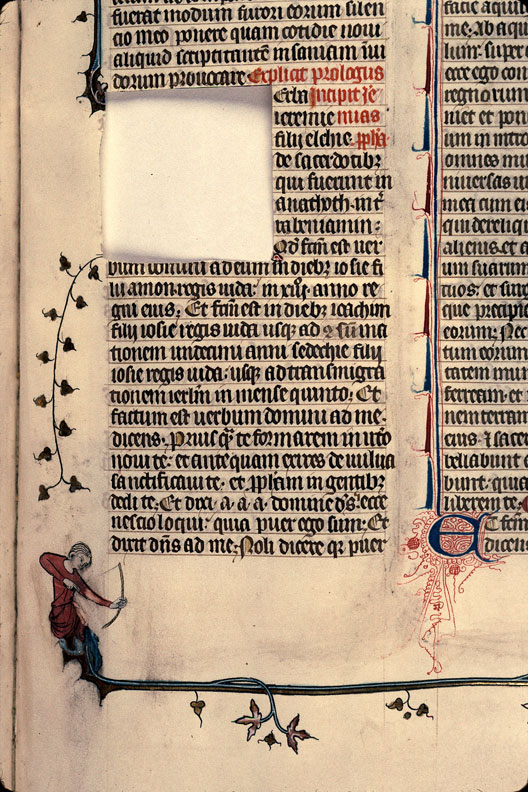 fuerat modum furori eorum silen
cio meo ponere quam cotidie noui
aliquid scriptitantem insaniam īui
dorum prouocare. Explicit prologus
Erba Incipit Je
ieremie mias
filij elchie. ppħa
de sacerdotibꝫ
qui fuerunt in
anathoth. in t̄
ra beniamin:
Qd̓ fcm̄ est uer
bum domini ad eum in diebꝫ iosie fi
lij amon regis iuda: in xiijº anno re
gni eius: Et fcm̄ est in diebꝫ ioachim
filij iosie regis iuda usqꝫ ad 9sūma
tionem undecimi anni sedechie filij
iosie regis iuda: usqꝫ ad transmigra
tionem ierlm̄ in mense quinto. Et
factum est uerbum domini ad me.
dicens. Priusqᷓ te formarem in utō
noui te: et antequam exires de uulua
sanctificaui te. et ppħam in gentibꝫ
dedi te. Et dixi. a. a. a. domine ds̄. ecce
nescio loqui: quia puer ego sum. Et
dixit dn̄s ad me. Noli dicere qr puer
facie aquil
me. Ab aqu
lium super
ecce ego con
regnorum
niet et pon
um in intro
omnes mu
niuersas u
mea cum ei
qui dereliqu
alienis. et a
um suarum
cios: et surg
que precipi
eorum: Nec
tum eorum
tatem mun
ferream. et
nem terram
eius. ⁊ sace
bellabunt c
bunt. quia
liberem te.
Et fcm̄
dicens